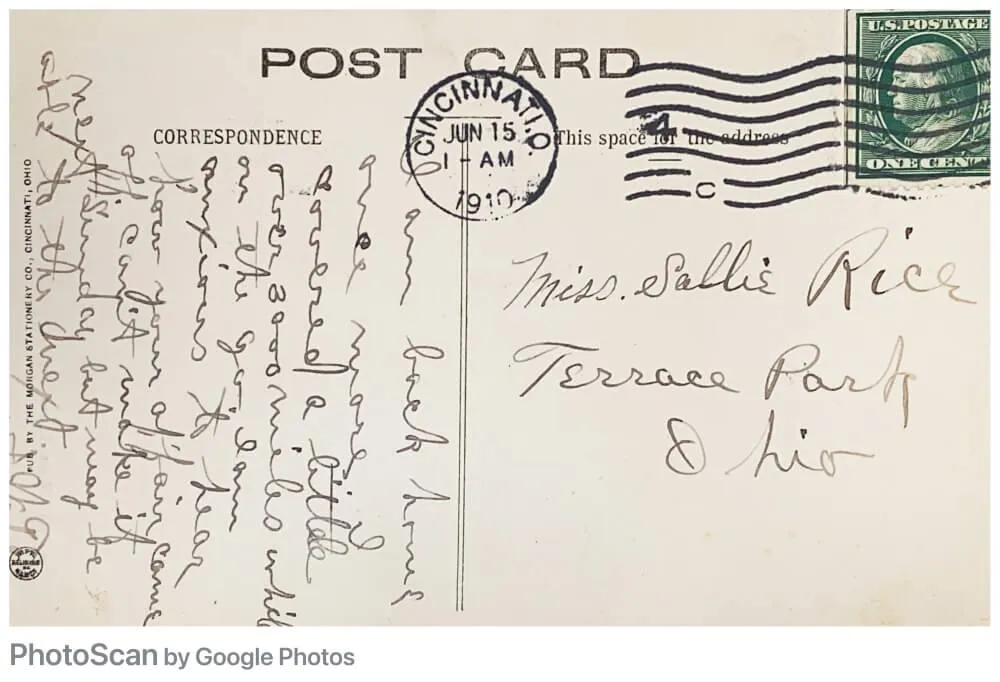 POST CARD
CORRESPONDENCE
This space for the address
CINCINNATI, O.
JUN 15
1-AM
1910
4
C
U.S.POSTAGE
ONE CENT
I am back home
once more I
covered a little
over 2000 miles while
on the go I am
anxious to hear
how your affair came
off can't make it
next Sunday but may be
able to the next
Miss. Sallie Rice
Terrace Park
Ohio
PUB. BY THE MORGAN STATIONERY CO., CINCINNATI, OHIO
PhotoScan by Google Photos